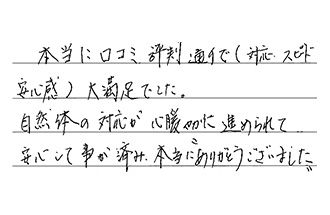 本当に口コミ評判通りで(対応、スピード
安心感)大満足でした。
自然体の対応が心暖やかに進められて
安心して事が済み、本当に"ありがとうございました"